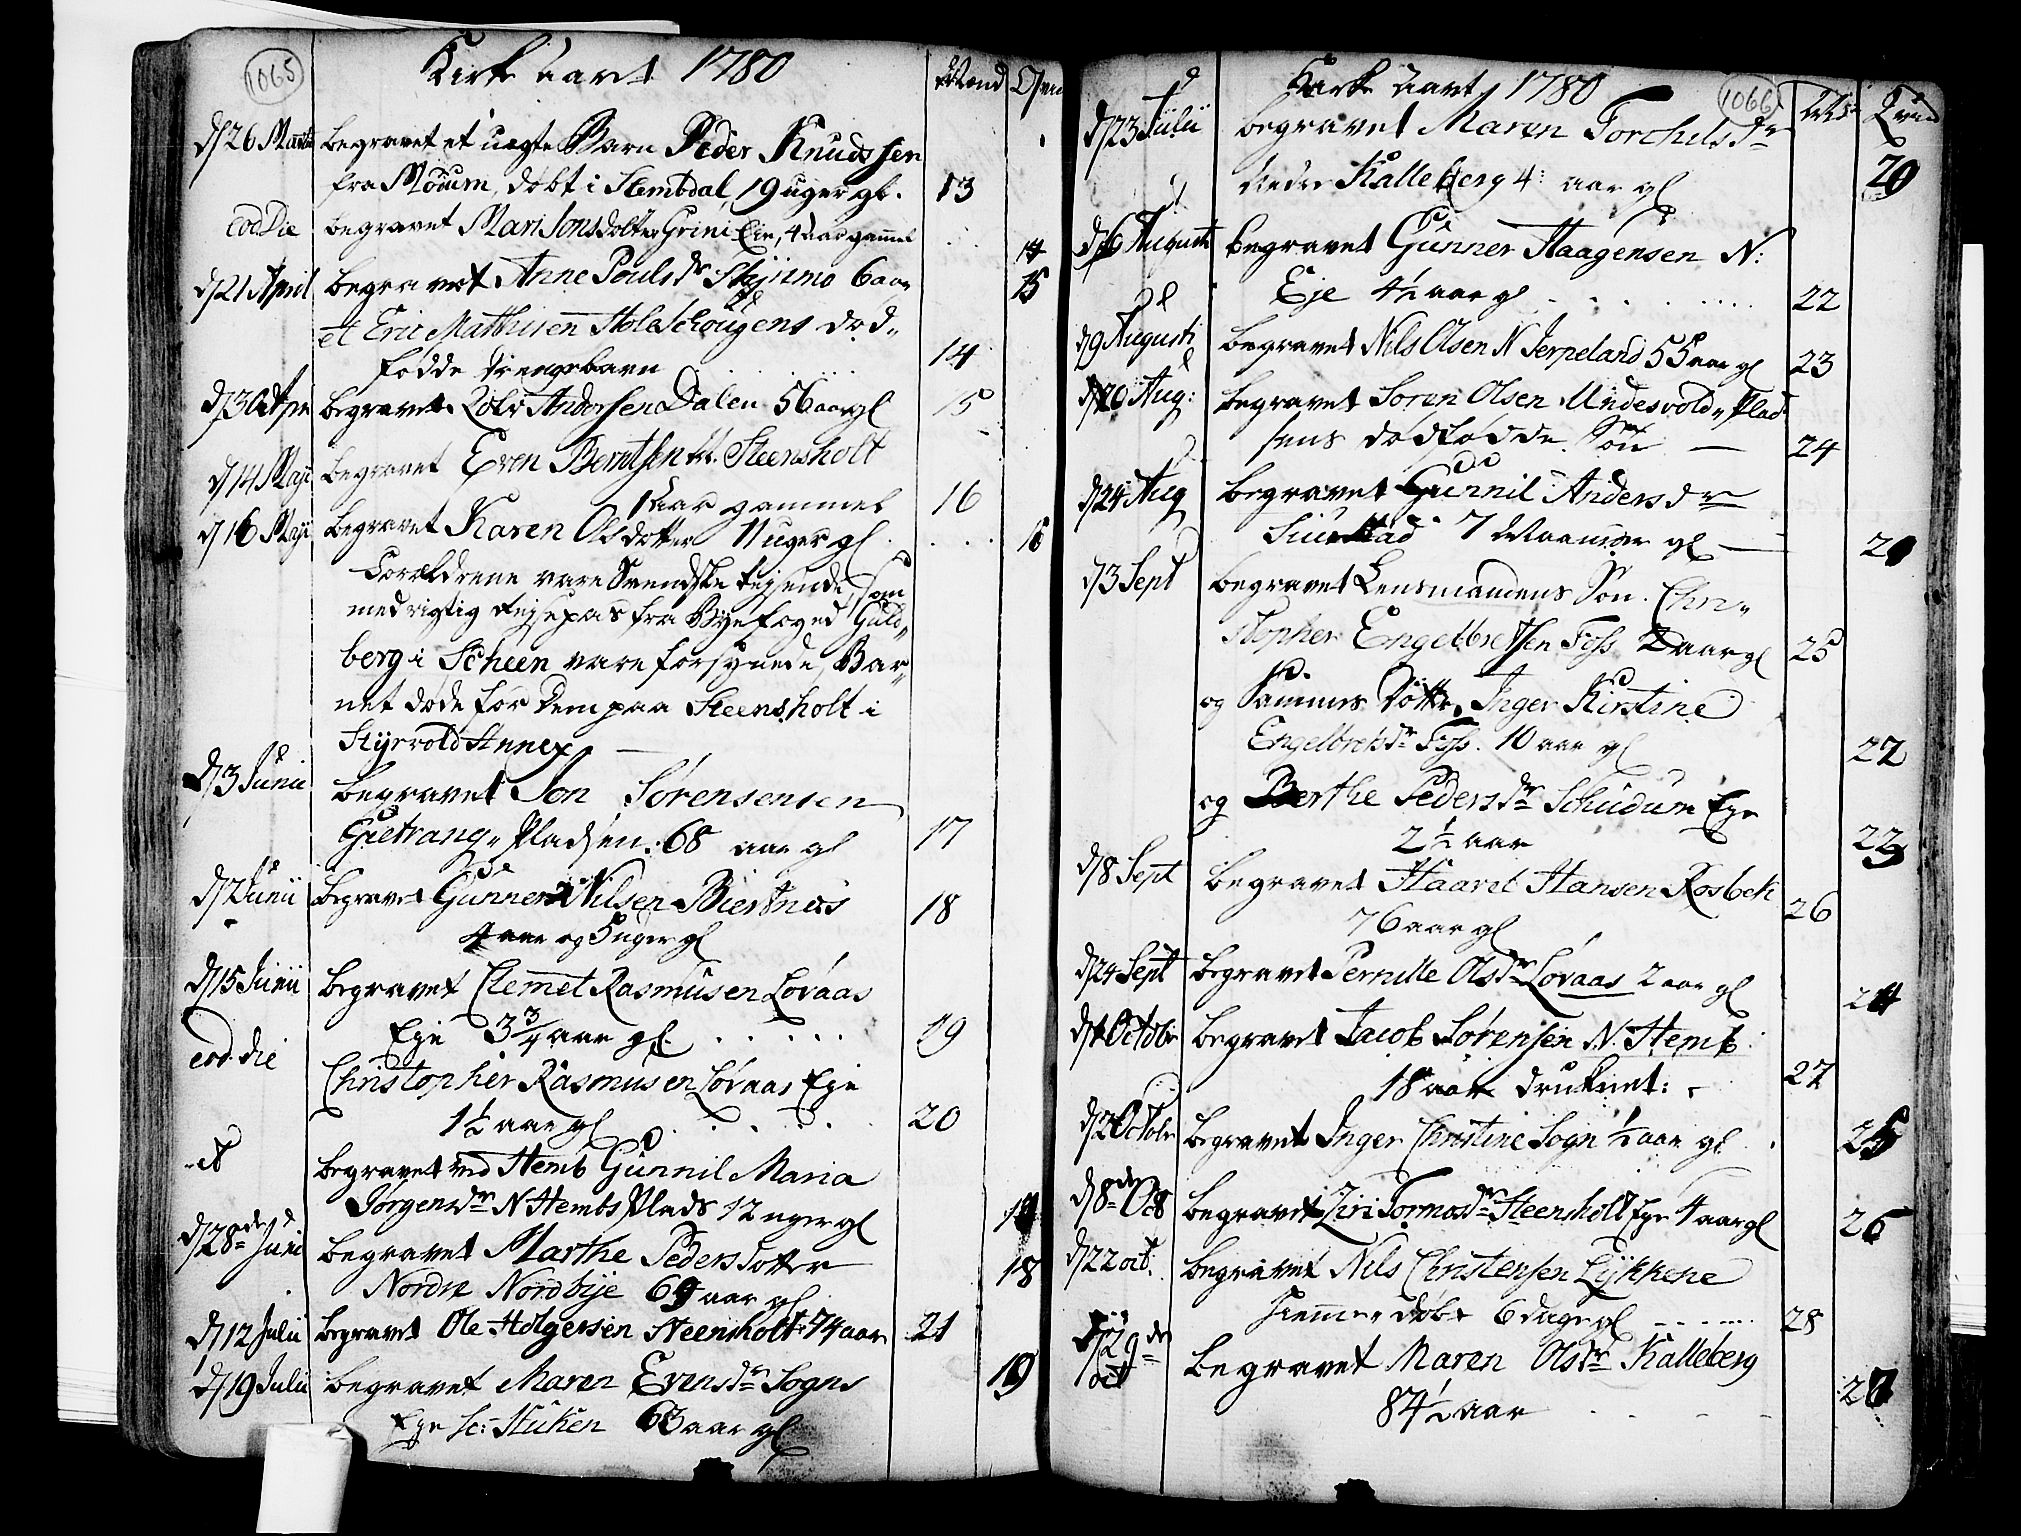 1065
Kirke aaret 1780
Mænd Qvin
d 26 Martii begravet et uægte Barn Peder Knudssen
fra Moüum, døbt i Hembdal, 19 uger gl. 13
eod Die begravet Mari Jonsdotter Grini Eie, 4 aar gammel 14
d 21 April begravet Anne Pouls dr 6 aar 15
et Eric Mathisen Holeschougens død„
fødde drengebarn 14
d 30 Apr begravet Rolv Andersen Dalen 56 aar gl 15
d 14 Maji begravet Even Berntsen Steensholt
1 aar gammel 16
d 16 Maji begravet Karen Olsdotter 11 uger gl. 16
Forældrene vare Svendske rejsende, som
med rigtig rejsepas fra Byefoged Guld„
berg i Scheen vare forsynede, Bar„
net døde for dem paa Steensholt i
Styrvold Annex
d 3 Junii begravet Jon Sørensensen
Gietrang„ Pladsen. 68 aar gl 17
d 7 Junii begravet Gunner Nilsen Biertnæs 18
4 aar og 5 uger gl
d 15 Junii begravet Clemet Rasmusen Løvaas
Eje 3 3/4 aar gl. 19
eod. die Christopher Rasmusen Løvaas Eje
1½ aar gl 20
et begravet ved Hemb Gunnil Maria
Jørgensdr N Hembs Plads 12 uger gl 17
d 28de Juni begravet Marthe Pedersdotter
Nordre Nordbÿe 69 aar gl 18
d 12 Julii begravet Ole Holgersen Steensholt 74 aar 21
d 19 Julii begravet Maren Evensdr Sogns
Eje sc: Stuken 63 aar gl 19
1066
Kirke Aaret 1780
Qvind
d 23 Julii begravet Maren Torchilsdr
Nedre Kalleberg 4 aar gl 20
d 6 Augusti begravet Gunner Haagensen N:
Eje 4½ aar gl 22
d 9 Augusti begravet Nils Olsen N Jerpeland 55 aar gl 23
d 20 Aug: begravet Soren Olsen Mudesvold„ Plad
sens dødfødde Søn 24
d 24 Aug begravet Gunnil Anders dr
7 Maaneder gl 21
d 3 Sept begravet Lensmandens Søn. Chri„
stopher Engelbretsen Foss 2 aar gl 25
og Sammes Dotter Inger Kirstine
Engelbretsdr Foss. 10 aar gl 22
og Berthe Pedersdr Schudum Eje
2½ aar 23
d 8 Sept begravet Haarel Hansen Rosbek 26
76 aar gl
d 24 Sept begravet Pernille Olsdr Løvaas 2 aar gl 24
d 1 Octobr begravet Jacob Sørensen N. Hemb
18 aar druknet: 27
d 2 Octobr begravet Inger Christine Sogn ½ aar gl 25
d 8de Oct begravet Ziri Tormosdr Steensholt Eje 4 aar gl 26
d 22 oct. begravet Nils Christensen Lÿkkene
hiemme døbt 6 dage gl 28
d 29de oct begravet Maren Olsdr Kalleberg
84½ aar 27